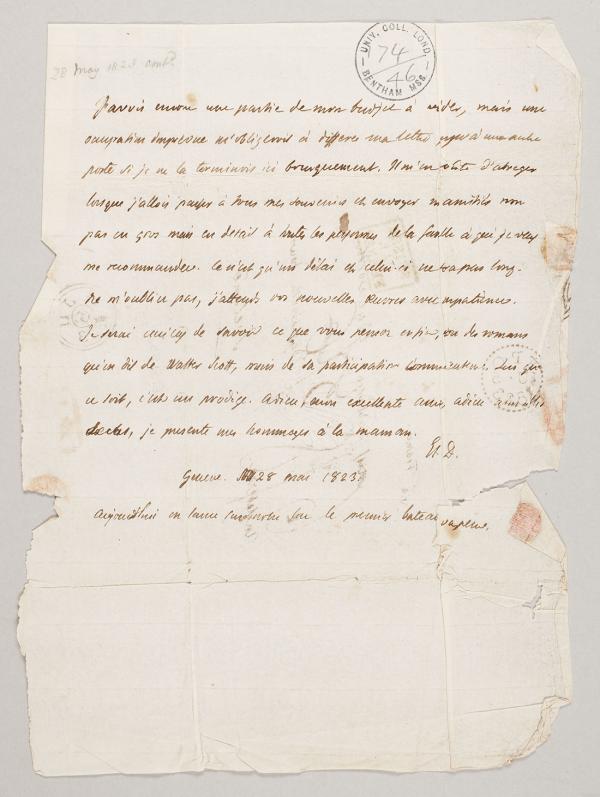 28 May 1823
UNIV. COLL. LOND.
74
46
BENTHAM MSS.
J'avois encore une partie de mon budjet à vider, mais une
occupation imprevue m'obligerois à differer ma lettre à une autre
poste si je ne la terminois ici brusquement. Il m'en coute d'abreger
lorsque j'allois passer à tous mes souvenirs et envoyer mes amitiés non
pas en gros mais en detail à toutes les personnes de la famille à qui je veux
me recommander. Ce n'est qu'un délai et celui-ci ne sera pas long.
Ne m'oubliez pas, j'attends vos nouvelles avec impatience.
Je serai de savoir ce que vous pensez des romans
qu'on dit de Walter Scott, mais de sa participation
ce soit, c'est un prodige. Adieu, mon excellente amie, adieu
je presente mes hommages à la maman.
Et. D.
Geneve. 28 mai 1823.
aujourd'hui on lance sur le premier bateau